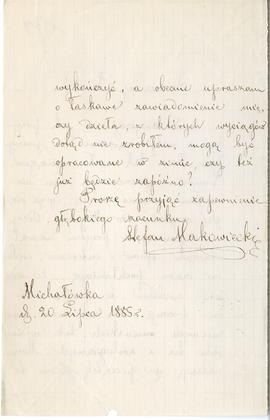 wykończyć, a obecnie upraszam
o łaskawe zawiadomienie mię,
czy dzieła, z których wyciągów
dotąd nie zrobiłem, mogą być
opracowane w zimie, czy też
już będzie zapóźno?
Proszę przyjąć zapewnienie
głębokiego szacunku
Stefan Makowiecki
Michałówka
d. 20 Lipca 1885 r.